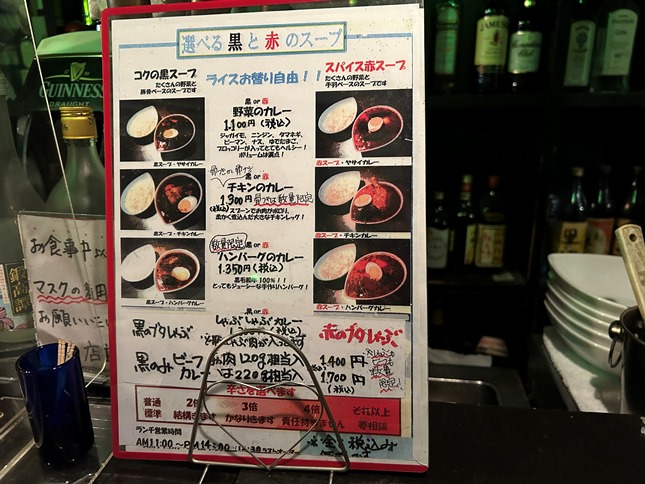 選べる 黒 と 赤 のスープ
コクの黒スープ
たくさんの野菜と
豚骨ベースのスープです
ライスお替り自由!!
スパイス赤スープ
たくさんの野菜と
手羽ベースのスープです
黒 or 赤
野菜のカレー
1,100円(税込)
ジャガイモ、ニンジン、タマネギ、
ピーマン、ナス、ゆでたまご、
ブロッコリーが入ってとてもヘルシー!
ボリュームは満点!
黒スープ・ヤサイカレー
赤スープ・ヤサイカレー
黒 or 赤
チキンのカレー
1,300円
(税込)
数量限定
スプーンでお肉がホロリ、
柔かく煮込んだ大きなチキンレッグ!
黒スープ・チキンカレー
赤スープ・チキンカレー
数量限定
黒 or 赤
ハンバーグのカレー
1,350円(税込)
黒毛和牛100%!!
とってもジューシーな手作りハンバーグ!
黒スープ・ハンバーグカレー
赤スープ・ハンバーグカレー
黒 or 赤
黒のブタしゃぶ
しゃぶしゃぶカレー
赤のブタしゃぶ
黒のみ ビーフカレー
お肉120g相当入
は220g相当入
1,400円
1,700円
(税込)
辛さを選べます
普通
標準
2倍
結構きます
3倍
かなりきます
4倍
責任持てません
それ以上
要相談
ランチ営業時間
AM11:00~PM14:00
税込み
GUINNESS
DRAUGHT
お食事中
マスクの着用
お願いいた
店
JAMESON